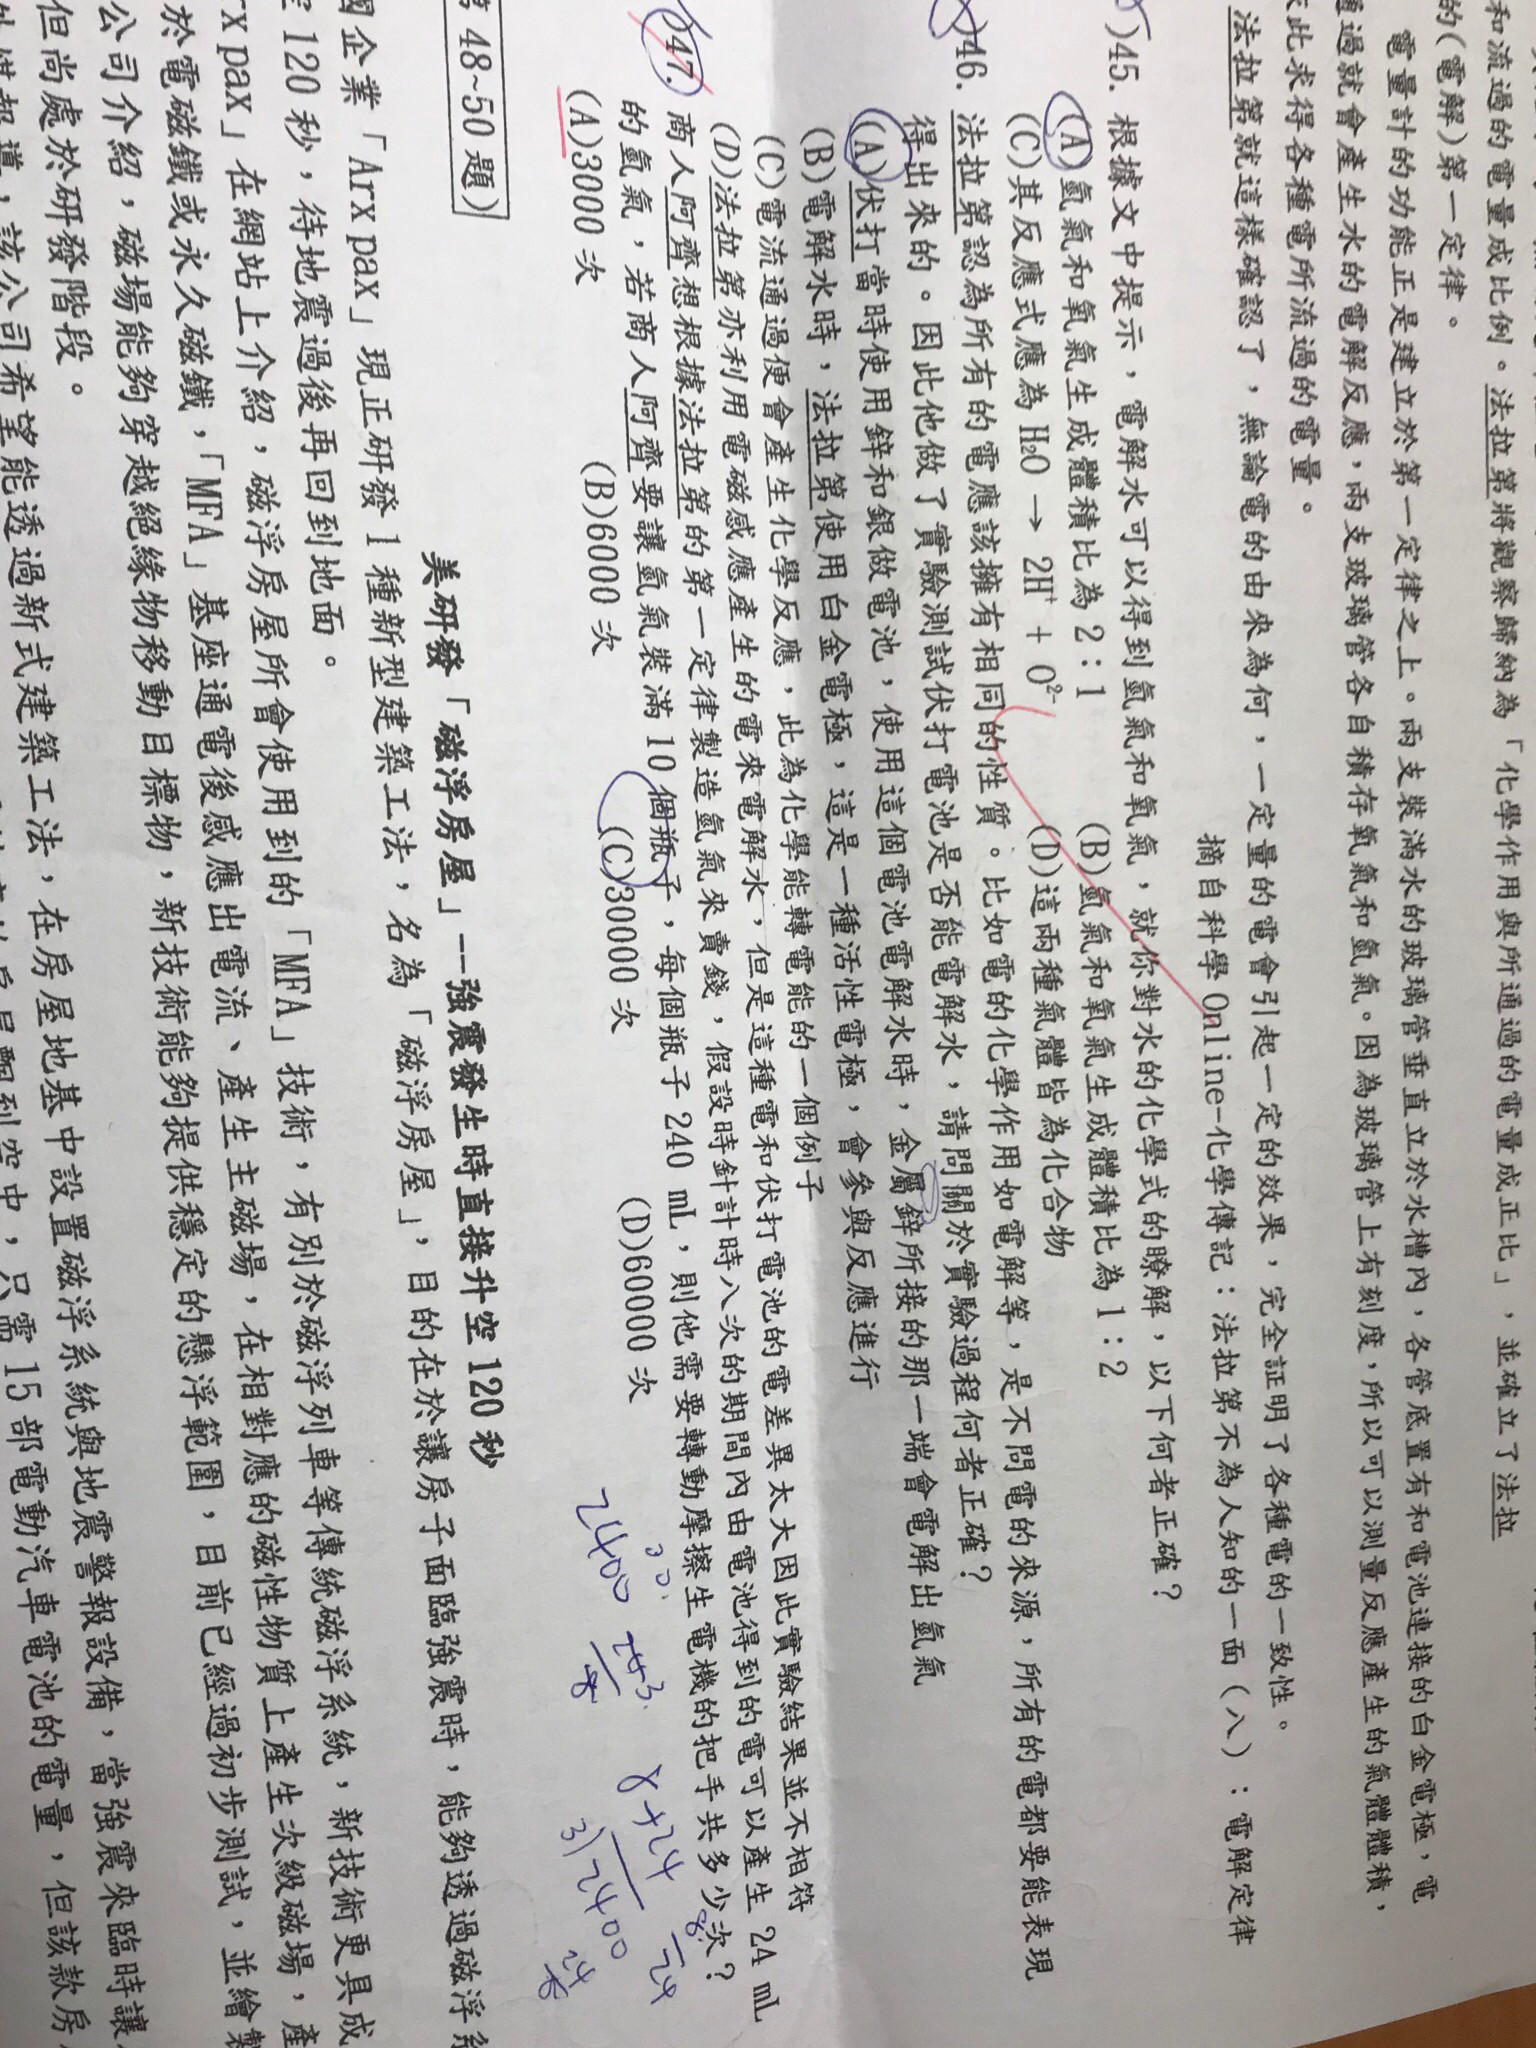 和流過的電量成比例。法拉第將觀察歸納為「化學作用與所通過的電量成正比」，並確立了法拉
的(電解)第一定律。
電量計的功能正是建立於第一定律之上。兩支裝滿水的玻璃管垂直立於水槽內，各管底置有和電池連接的白金電極，電
通過就會產生水的電解反應，兩支玻璃管各自積存氧氣和氫氣。因為玻璃管上有刻度，所以可以測量反應產生的氣體體積，
此求得各種電所流過的電量。
法拉第就這樣確認了，無論電的由來為何，一定量的電會引起一定的效果，完全証明了各種電的一致性。
摘自科學Online-化學傳記：法拉第不為人知的一面（八）：電解定律
)45. 根據文中提示，電解水可以得到氫氣和氧氣，就你對水的化學式的瞭解，以下何者正確？
(A)氫氣和氧氣生成體積比為2：1 (B)氫氣和氧氣生成體積比為1：2
(C)其反應式應為H₂O → 2H⁺ + O²⁻ (D)這兩種氣體皆為化合物
)46. 法拉第認為所有的電應該擁有相同的性質。比如電的化學作用如電解等，是不問電的來源，所有的電都要能表現
得出來的。因此他做了實驗測試伏打電池是否能電解水，請問關於實驗過程何者正確？
(A)伏打當時使用鋅和銀做電池，使用這個電池電解水時，金屬鋅所接的那一端會電解出氫氣
(B)電解水時，法拉第使用白金電極，這是一種活性電極，會參與反應進行
(C)電流通過便會產生化學反應，此為化學能轉電能的一個例子
(D)法拉第亦利用電磁感應產生的電來電解水，但是這種電和伏打電池的電差異太大因此實驗結果並不相符
)47. 商人阿齊想根據法拉第的第一定律製造氫氣來賣錢，假設時針計時八次的期間內由電池得到的電可以產生24 mL
的氫氣，若商人阿齊要讓氫氣裝滿10個瓶子，每個瓶子240 mL，則他需要轉動摩擦生電機的把手共多少次？
(A)3000次 (B)6000次 (C)30000次 (D)60000次
30.
2400 3.
8
8 24
3)2400
8
24
24
8
48~50題)
美研發「磁浮房屋」--強震發生時直接升空120秒
國企業「Arx pax」現正研發1種新型建築工法，名為「磁浮房屋」，目的在於讓房子面臨強震時，能夠透過磁浮系
120秒，待地震過後再回到地面。
rx pax」在網站上介紹，磁浮房屋所會使用到的「MFA」技術，有別於磁浮列車等傳統磁浮系統，新技術更具成
於電磁鐵或永久磁鐵，「MFA」基座通電後感應出電流、產生主磁場，在相對應的磁性物質上產生次級磁場，產
公司介紹，磁場能夠穿越絕緣物移動目標物，新技術能夠提供穩定的懸浮範圍，目前已經過初步測試，並繪製
但尚處於研發階段。
外媒報道，該公司希望能透過新式建築工法，在房屋地基中設置磁浮系統與地震警報設備，當強震來臨時讓
房屋飄到空中，只需15部電動汽車電池的電量，但該款房